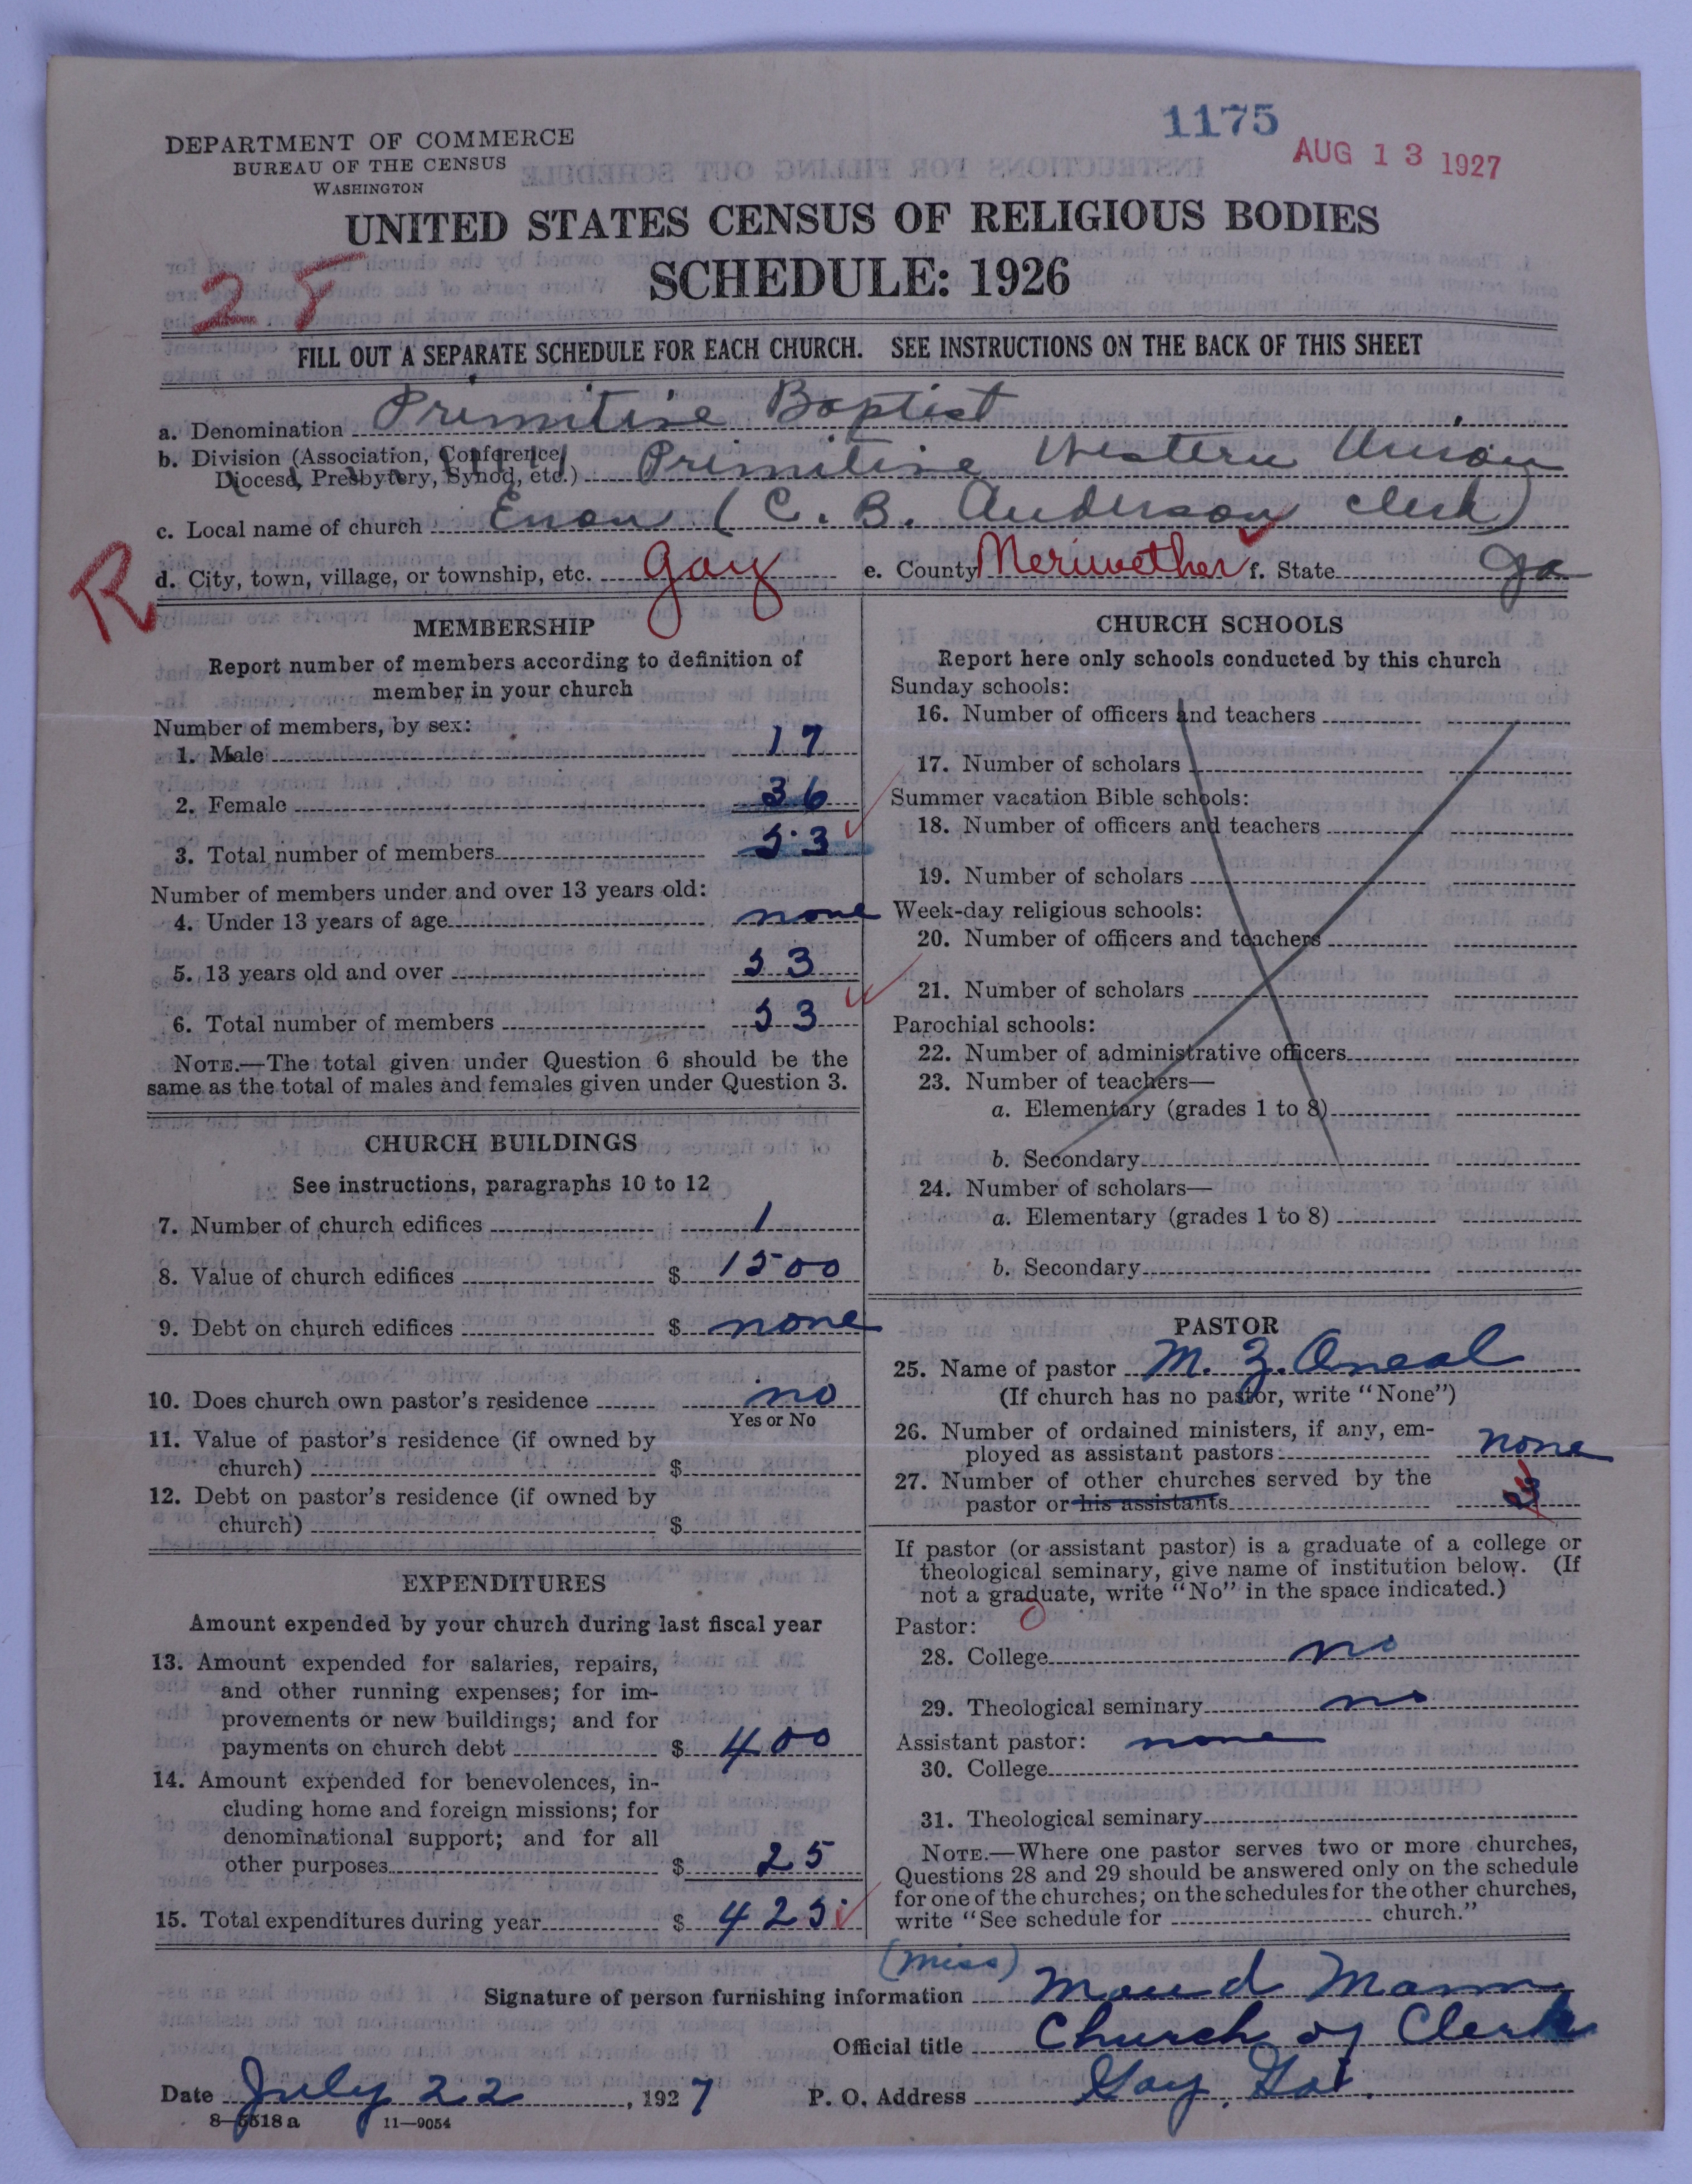 1175
AUG 13 1927
DEPARTMENT OF COMMERCE
BUREAU OF THE CENSUS
WASHINGTON
UNITED STATES CENSUS OF RELIGIOUS BODIES
SCHEDULE: 1926
FILL OUT A SEPARATE SCHEDULE FOR EACH CHURCH. SEE INSTRUCTIONS ON THE BACK OF THIS SHEET
a. Denomination Primitive Baptist
b. Division (Association, Conference, Diocese, Presbytery, Synod, etc.) Primitive Western Union
c. Local name of church Enon (C. B. Anderson clerk)
R
d. City, town, village, or township, etc. Gay e. County Meriwether f. State Ga
MEMBERSHIP
Report number of members according to definition of
member in your church
Number of members, by sex:
1. Male 17
2. Female 36
3. Total number of members 53
Number of members under and over 13 years old:
4. Under 13 years of age none
5. 13 years old and over 53
6. Total number of members 53
NOTE.—The total given under Question 6 should be the
same as the total of males and females given under Question 3.
CHURCH BUILDINGS
See instructions, paragraphs 10 to 12
7. Number of church edifices 1
8. Value of church edifices $ 1500
9. Debt on church edifices $ none
10. Does church own pastor's residence no
Yes or No
11. Value of pastor's residence (if owned by
church) $
12. Debt on pastor's residence (if owned by
church) $
EXPENDITURES
Amount expended by your church during last fiscal year
13. Amount expended for salaries, repairs,
and other running expenses; for im-
provements or new buildings; and for
payments on church debt $ 400
14. Amount expended for benevolences, in-
cluding home and foreign missions; for
denominational support; and for all
other purposes $ 25
15. Total expenditures during year $ 425
CHURCH SCHOOLS
Report here only schools conducted by this church
Sunday schools:
16. Number of officers and teachers
17. Number of scholars
Summer vacation Bible schools:
18. Number of officers and teachers
19. Number of scholars
Week-day religious schools:
20. Number of officers and teachers
21. Number of scholars
Parochial schools:
22. Number of administrative officers
23. Number of teachers—
a. Elementary (grades 1 to 8)
b. Secondary
24. Number of scholars—
a. Elementary (grades 1 to 8)
b. Secondary
PASTOR
25. Name of pastor M. Z. Oneal
(If church has no pastor, write "None")
26. Number of ordained ministers, if any, em-
ployed as assistant pastors none
27. Number of other churches served by the
pastor or his assistants 3
If pastor (or assistant pastor) is a graduate of a college or
theological seminary, give name of institution below. (If
not a graduate, write "No" in the space indicated.)
Pastor:
28. College no
29. Theological seminary no
Assistant pastor: none
30. College
31. Theological seminary
NOTE.—Where one pastor serves two or more churches,
Questions 28 and 29 should be answered only on the schedule
for one of the churches; on the schedules for the other churches,
write "See schedule for church."
(Miss)
Signature of person furnishing information Maud Mann
Official title Church of Clerk
Date July 22, 1927 P. O. Address Gay, Ga.
8—5518 a 11—9054